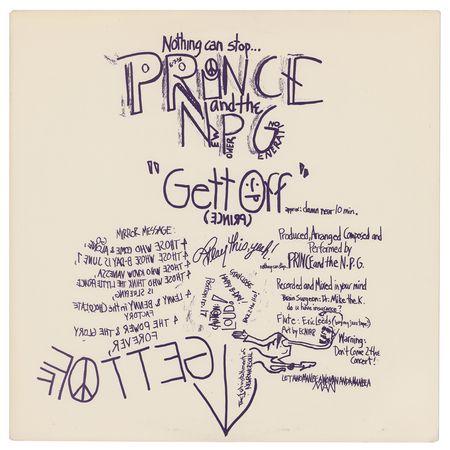 Nothing can stop...
PRINCE
and the
NPG
NEW POWER GENERATION
"Gett Off"
(PRINCE)
approx: damn near 10 min.
MIRROR MESSAGE:
4 THOSE WHO COME 4
THOSE WHO'S B-DAY IS JUNE 7
4 THOSE WHO KNOW VANESSA,
4 THOSE WHO THINK THE LITTLE PRINCE
IS SLEEPING,
LENNY & BENNY in the CHOCOLATE
FACTORY
4 THE POWER & THE GLORY
FOREVER,
GETT OFF
Play this, yeah!
HAPPY B-DAY!
LOUD!
Produced, Arranged Composed and
Performed by
nothing can stop... PRINCE and the N.P.G.
Recorded and Mixed in your mind
Brain Surgeon: Dr. Mike the K.
do u have insurance?
Flute: Eric Leeds
Art by
Warning:
Don't Come 2 the
Concert!
LET A WOMAN BE A WOMAN AND A MAN BE A
MAN